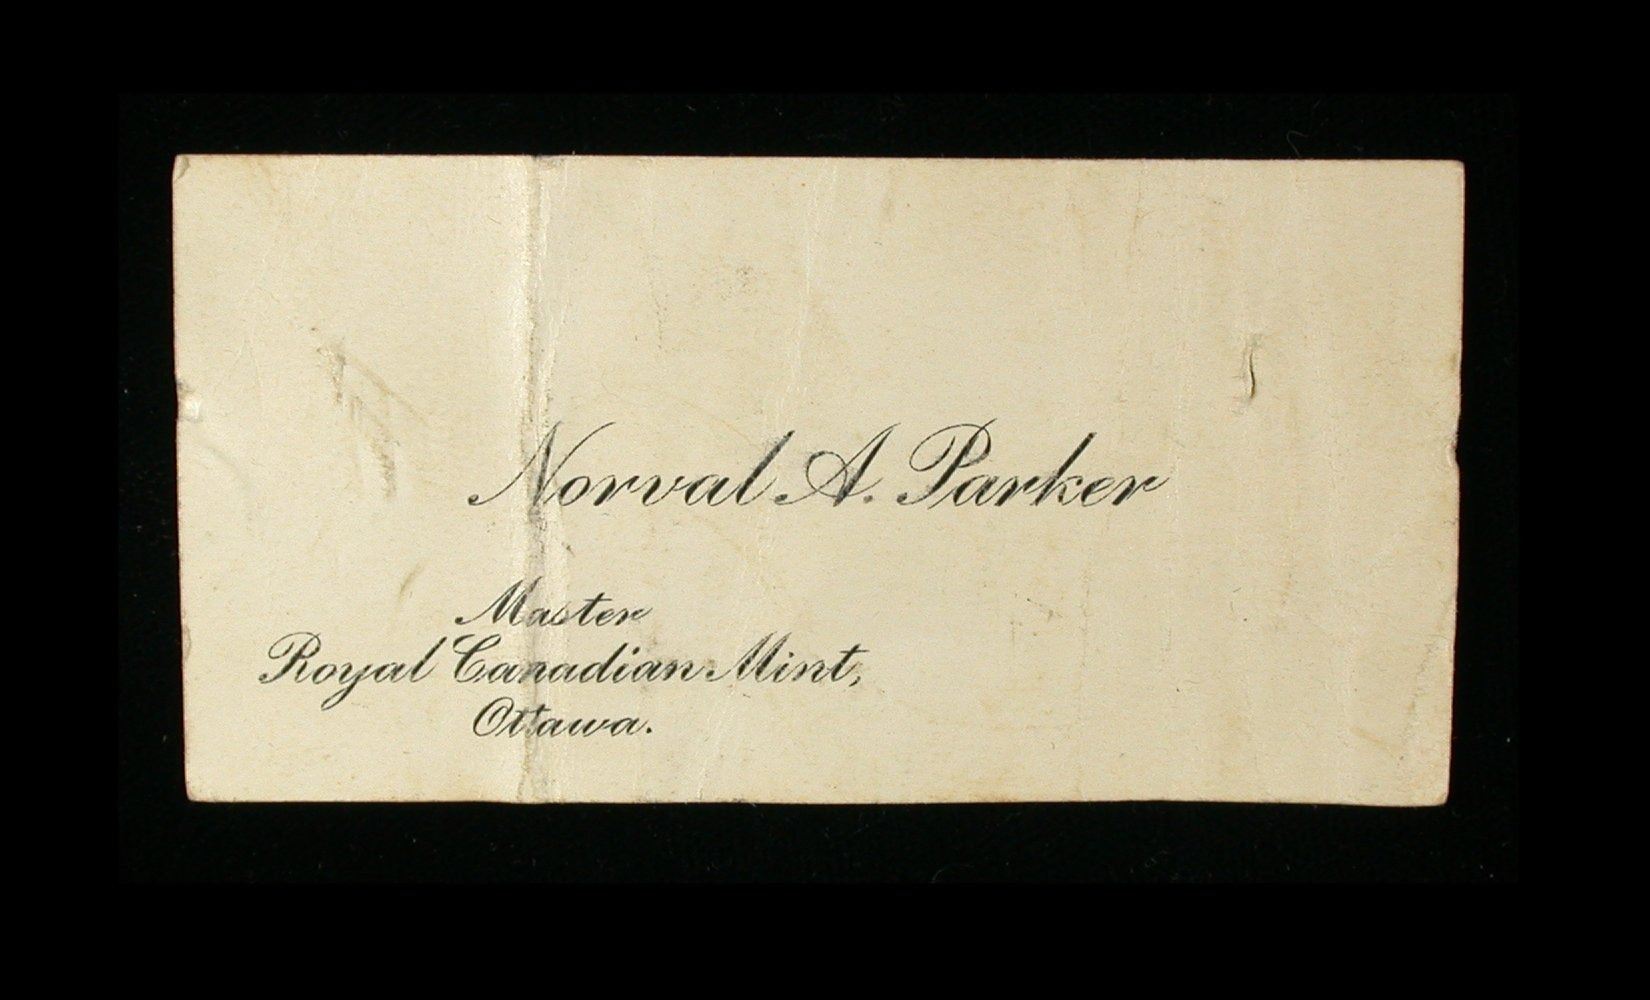 Norval A. Parker
Master
Royal Canadian Mint,
Ottawa.